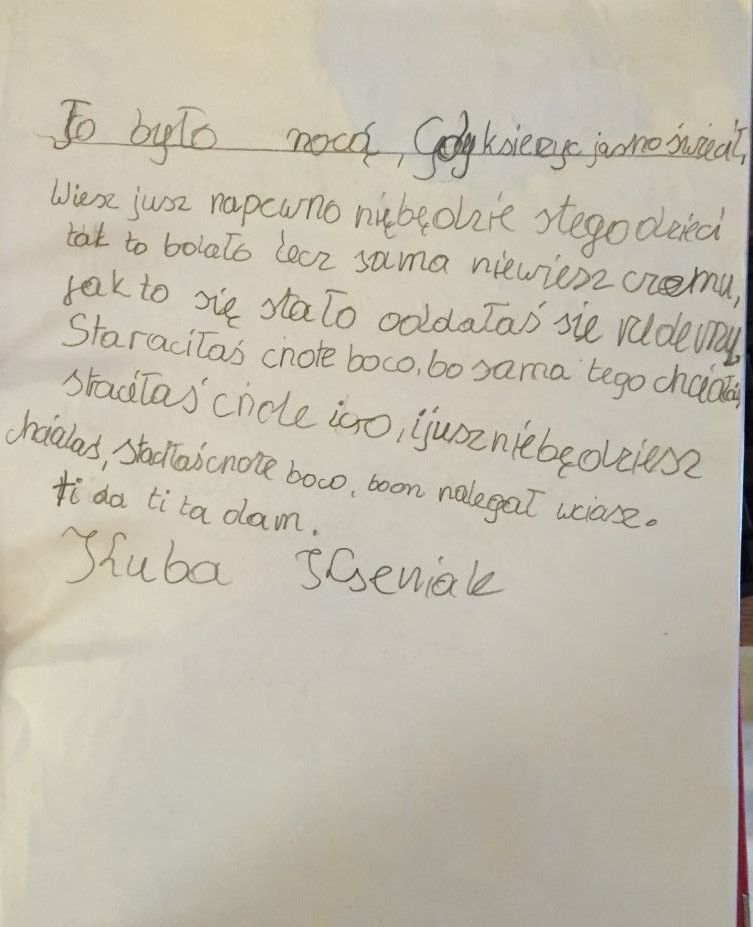 To było nocą, Gdy ksierzyc jasno świeał,
Wiesz jusz napewno niębędzie stego dzieci
tak to bolało lecz sama niewiesz czemu,
jak to się stało oddałaś sie
Staraciłaś cnote boco, bo sama tego
staciłaś cnole ico, ijusz niebędziesz
chciałaś, staciłaś cnote boco, boon nalegał wciasz.
ti da ti ta dam.
Kuba Kseniak